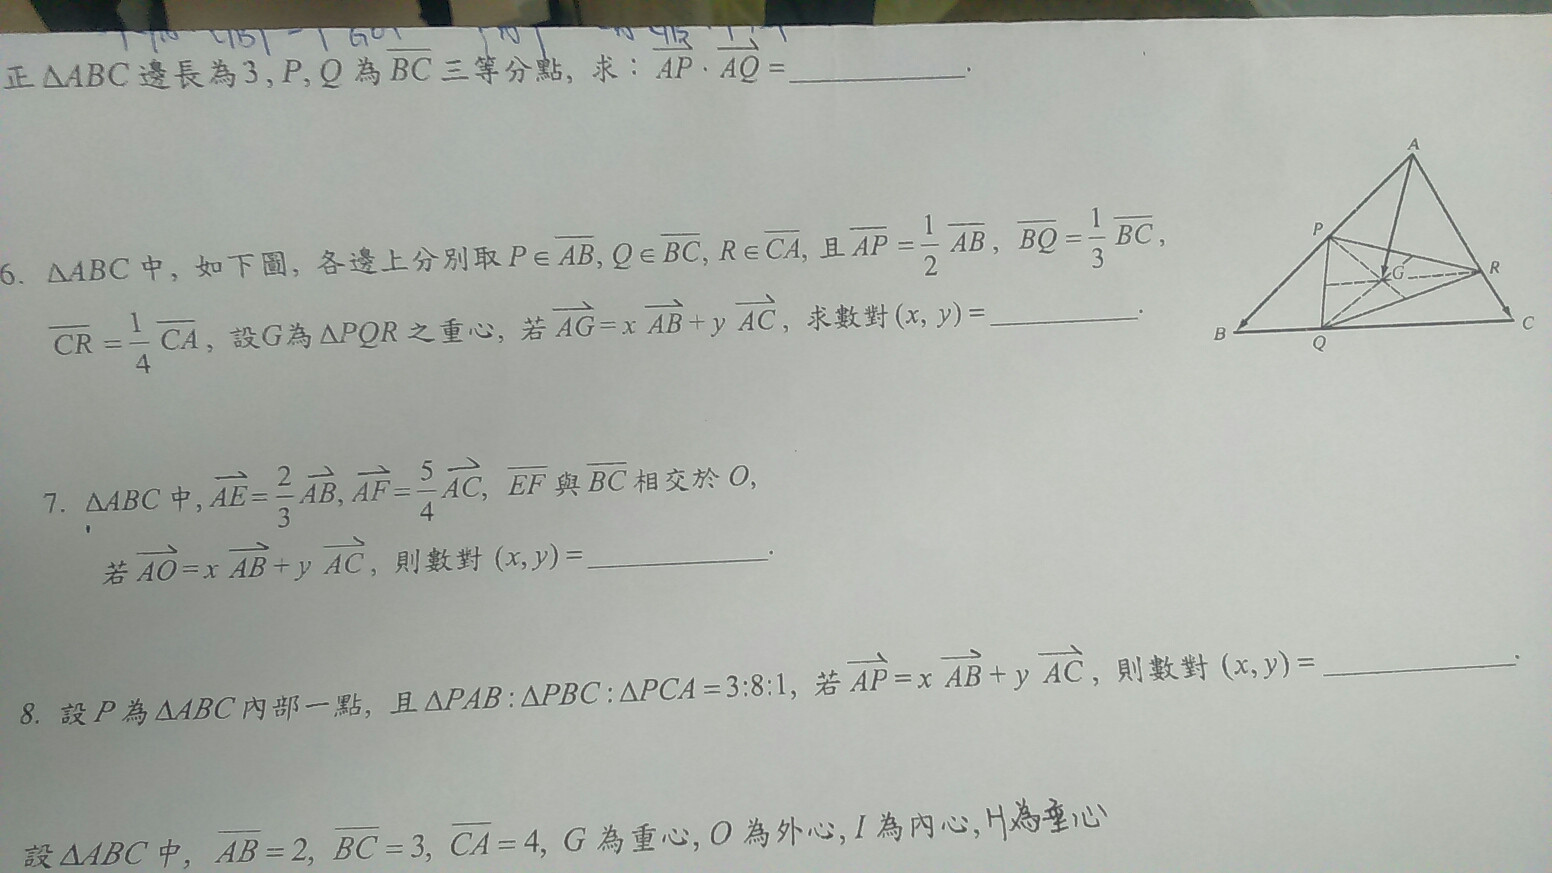 正 △ABC 邊長為3, P, Q 為 \overline{BC} 三等分點, 求: \overrightarrow{AP} · \overrightarrow{AQ} = ________.
6. △ABC 中, 如下圖, 各邊上分別取 P ∈ \overline{AB}, Q ∈ \overline{BC}, R ∈ \overline{CA}, 且 \overline{AP} = \frac{1}{2} \overline{AB}, \overline{BQ} = \frac{1}{3} \overline{BC},
\overline{CR} = \frac{1}{4} \overline{CA}, 設G為 △PQR 之重心, 若 \overrightarrow{AG} = x \overrightarrow{AB} + y \overrightarrow{AC}, 求數對(x, y) = ________.
A
P
G
R
B
Q
C
7. △ABC 中, \overrightarrow{AE} = \frac{2}{3} \overrightarrow{AB}, \overrightarrow{AF} = \frac{5}{4} \overrightarrow{AC}, \overline{EF} 與 \overline{BC} 相交於 O,
若 \overrightarrow{AO} = x \overrightarrow{AB} + y \overrightarrow{AC}, 則數對 (x, y) = ________.
8. 設 P 為 △ABC 內部一點, 且 △PAB : △PBC : △PCA = 3:8:1, 若 \overrightarrow{AP} = x \overrightarrow{AB} + y \overrightarrow{AC}, 則數對 (x, y) = ________.
設 △ABC 中, \overline{AB} = 2, \overline{BC} = 3, \overline{CA} = 4, G 為重心, O 為外心, I 為內心, H為垂心